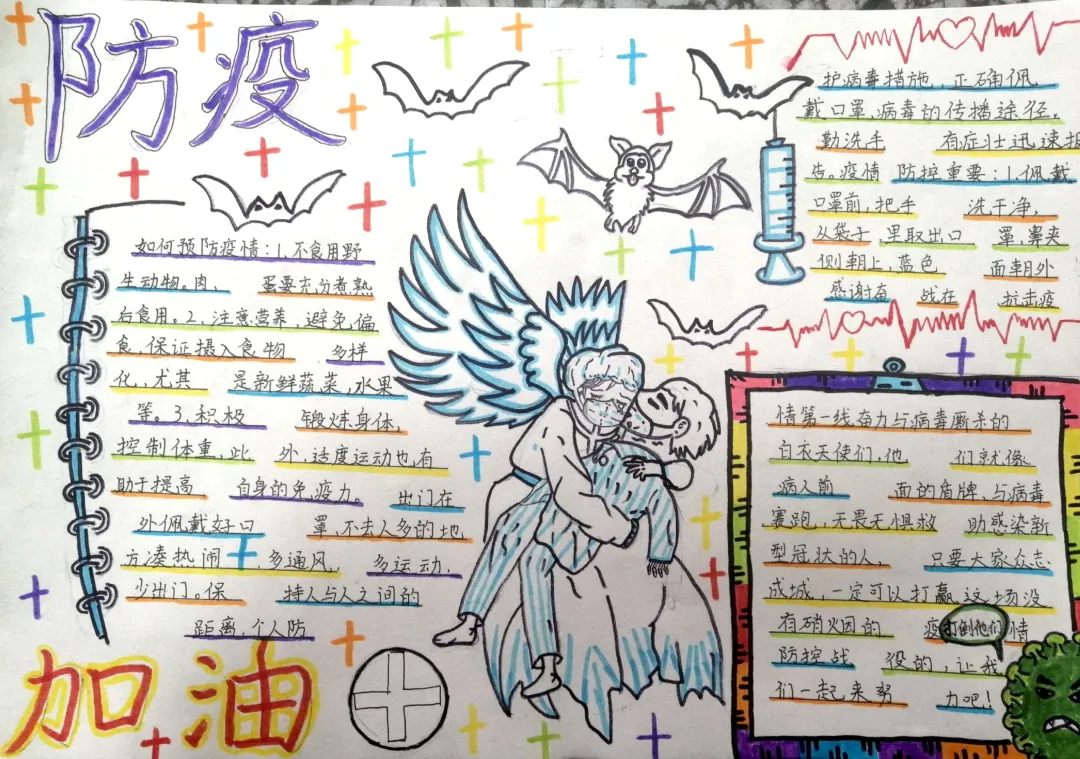 防疫
如何预防疫情：1、不食用野
生动物。肉、 蛋要充分煮熟
后食用。2、注意营养、避免偏
食，保证摄入食物 多样
化，尤其 是新鲜蔬菜，水果
等。3、积极 锻炼身体，
控制体重，此 外，适度运动也，有
助于提高 自身的免，疫力。 出门在
外佩戴好口 罩，不去人多的地
方凑热闹 多通风， 多运动，
少出门。保 持人与人之间的
距离，个人防
护病毒措施，正确佩
戴口罩，病毒的传播途径，
勤洗手 有症壮迅速报
告。疫情 防控重要：1.佩戴
口罩前，把手 洗干净，
从袋子 里取出口 罩，鼻夹
侧朝上，蓝色 面朝外
感谢奋 战在 抗击疫
情第一线奋力与病毒厮杀的
白衣天使们，他 们就像
病人前 面的盾牌、与病毒
赛跑，无畏无惧救 助感染新
型冠状的人， 只要大家众志
成城，一定可以打赢这场没
有硝烟的 疫情
防控战 役的，让我
们一起来努 力吧！
打倒他们
加油